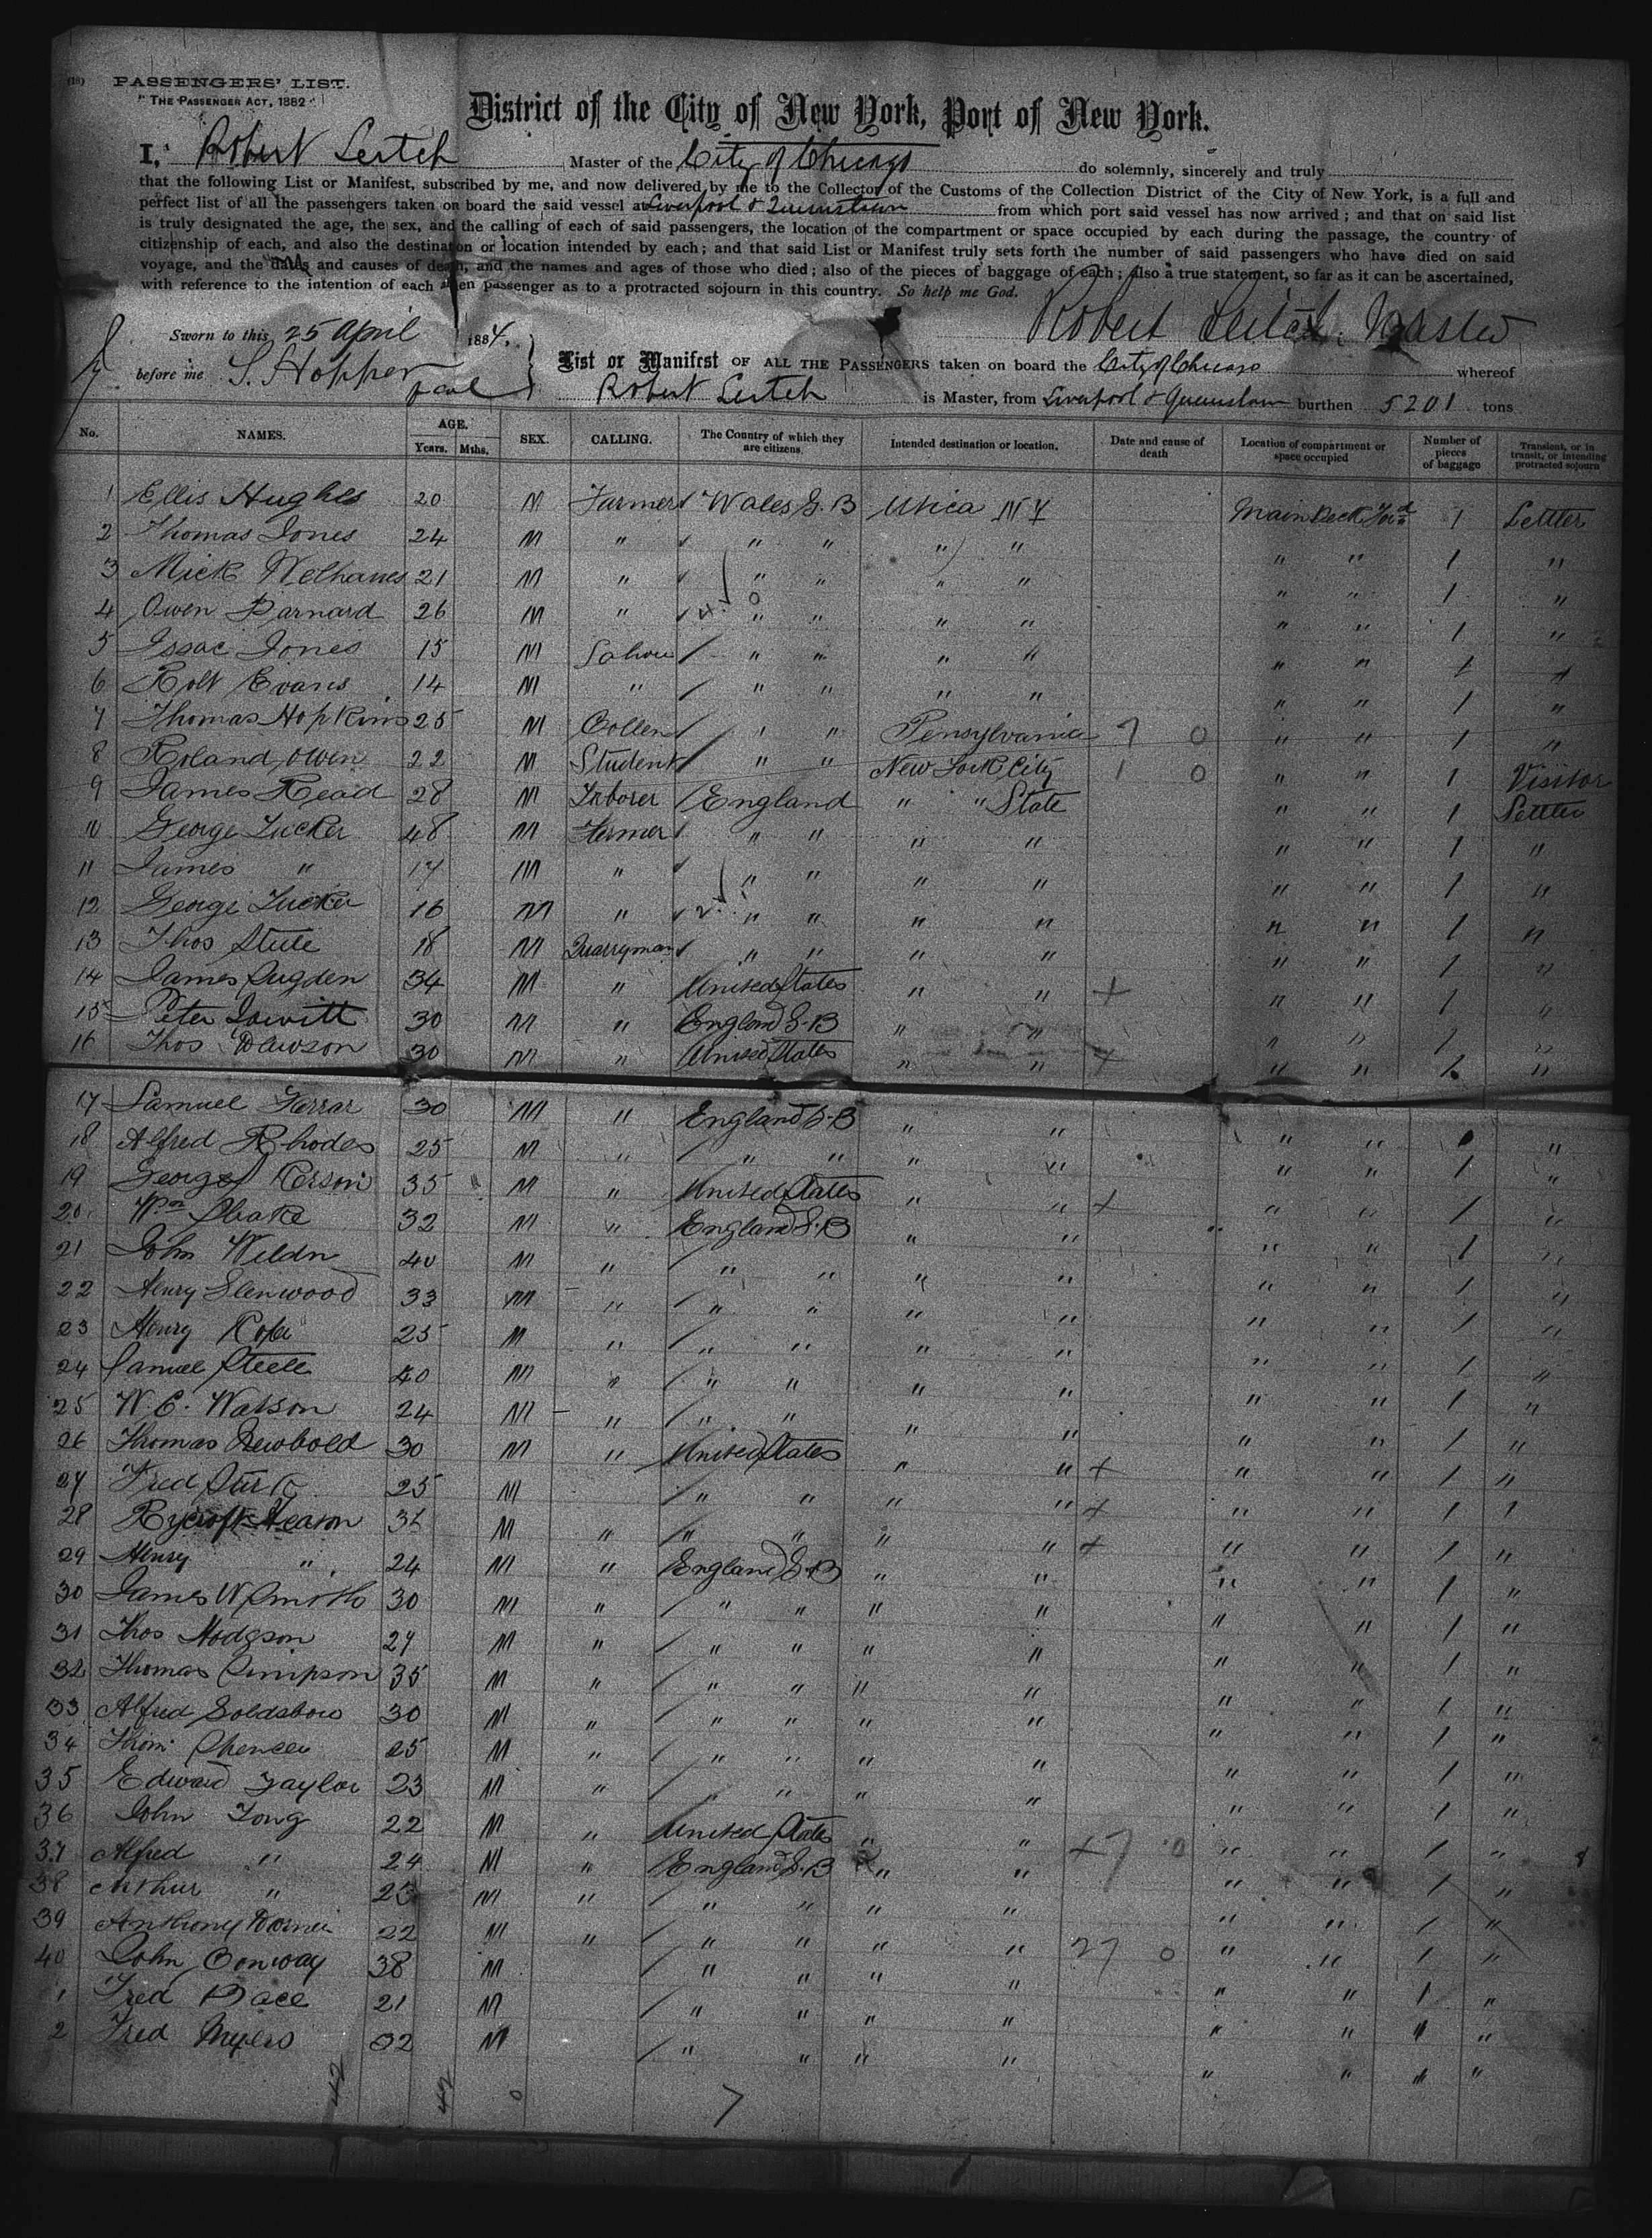 (16) PASSENGERS' LIST.
"THE PASSENGER ACT, 1882"
District of the City of New York, Port of New York.
I, Robert Leitch Master of the City of Chicago do solemnly, sincerely and truly
that the following List or Manifest, subscribed by me, and now delivered by me to the Collector of the Customs of the Collection District of the City of New York, is a full and
perfect list of all the passengers taken on board the said vessel at Liverpool & Queenstown from which port said vessel has now arrived; and that on said list
is truly designated the age, the sex, and the calling of each of said passengers, the location of the compartment or space occupied by each during the passage, the country of
citizenship of each, and also the destination or location intended by each; and that said List or Manifest truly sets forth the number of said passengers who have died on said
voyage, and the dates and causes of death, and the names and ages of those who died; also of the pieces of baggage of each; also a true statement, so far as it can be ascertained,
with reference to the intention of each alien passenger as to a protracted sojourn in this country. So help me God.
Robert Leitch Master
Sworn to this 25 April 1884,
before me S. Hopper
List or Manifest OF ALL THE PASSENGERS taken on board the City of Chicago whereof
Robert Leitch is Master, from Liverpool & Queenstown burthen 5201 tons
No. NAMES. AGE. Years. Mths. SEX. CALLING. The Country of which they are citizens. Intended destination or location. Date and cause of death Location of compartment or space occupied Number of pieces of baggage Transient, or in transit, or intending protracted sojourn
1 Ellis Hughes 20 M Farmer Wales G.B Utica NY Main Deck For'd 1 Settler
2 Thomas Jones 24 M " " " " " " " 1 "
3 Mick 21 M " " " " " " " 1 "
4 Owen Barnard 26 M " " " " " " " 1 "
5 Issac Jones 15 M " " " " " " 1 "
6 Robt Evans 14 M " " " " " " " 1 "
7 Thomas Hopkins 25 M " " Pensylvania 7 0 " " 1 "
8 Roland Owen 22 M Student " " New York City 1 0 " " 1 Visitor
9 James Read 28 M Laborer England " " State " " 1 Settler
10 George Tucker 48 M Farmer " " " " " " 1 "
11 James " 17 M " " " " " " " 1 "
12 George Tucker 16 M " " " " " " " 1 "
13 Thos Steele 18 M Quarryman " " " " " " 1 "
14 James Sugden 34 M " United States " " + " " 1 "
15 Peter Jowitt 30 M " England G.B " " " " 1 "
16 Thos Dawson 30 M " United States " " + " " 1 "
17 Samuel Farrar 30 M " England G.B " " " " 1 "
18 Alfred Rhodes 25 M " " " " " " " 1 "
19 George 35 M " United States " " + " " 1 "
20 Wm 32 M " England G.B " " " " 1 "
21 John 40 M " " " " " " " 1 "
22 Henry Glenwood 33 M " " " " " " " 1 "
23 Henry 25 M " " " " " " " 1 "
24 Samuel Steele 40 M " " " " " " " 1 "
25 W. C. Watson 24 M " " " " " " " 1 "
26 Thomas Newbold 30 M " United States " " + " " 1 "
27 Fred 25 M " " " " + " " 1 "
28 M " " " " " + " " 1 "
29 Henry " 24 M " England G.B " " " " 1 "
30 James W Smith 30 M " " " " " " " 1 "
31 Thos Hodgson 27 M " " " " " " " 1 "
32 Thomas Simpson 35 M " " " " " " " 1 "
33 Alfred 30 M " " " " " " " 1 "
34 Thom. Spencer 25 M " " " " " " " 1 "
35 Edward Taylor 23 M " " " " " " " 1 "
36 John Long 22 M " United States " " + 7 0 " " 1 "
37 Alfred " 24 M " England G.B " " " " 1 "
38 Arthur " 25 M " " " " " " " 1 "
39 Anthony 22 M " " " " " 27 0 " " 1 "
40 John Conway 38 M " " " " " " 1 "
1 Fred Race 21 M " " " " " " " "
2 Fred Myers 32 M " " " " " " " "
42 42 0 7